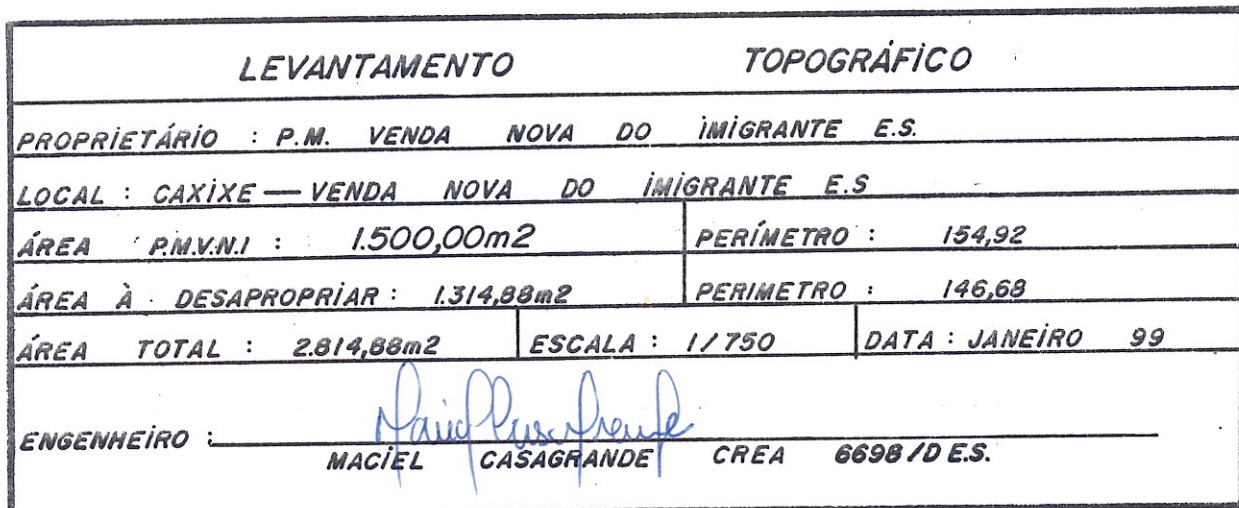 LEVANTAMENTO TOPOGRÁFICO
PROPRIETÁRIO : P.M. VENDA NOVA DO IMIGRANTE E.S.
LOCAL : CAXIXE — VENDA NOVA DO IMIGRANTE E.S
ÁREA P.M.V.N.I : 1.500,00m2 PERÍMETRO : 154,92
ÁREA À DESAPROPRIAR : 1.314,88m2 PERIMETRO : 146,68
ÁREA TOTAL : 2.814,88m2 ESCALA : 1/750 DATA : JANEIRO 99
ENGENHEIRO :
MACIEL CASAGRANDE CREA 6698/D E.S.